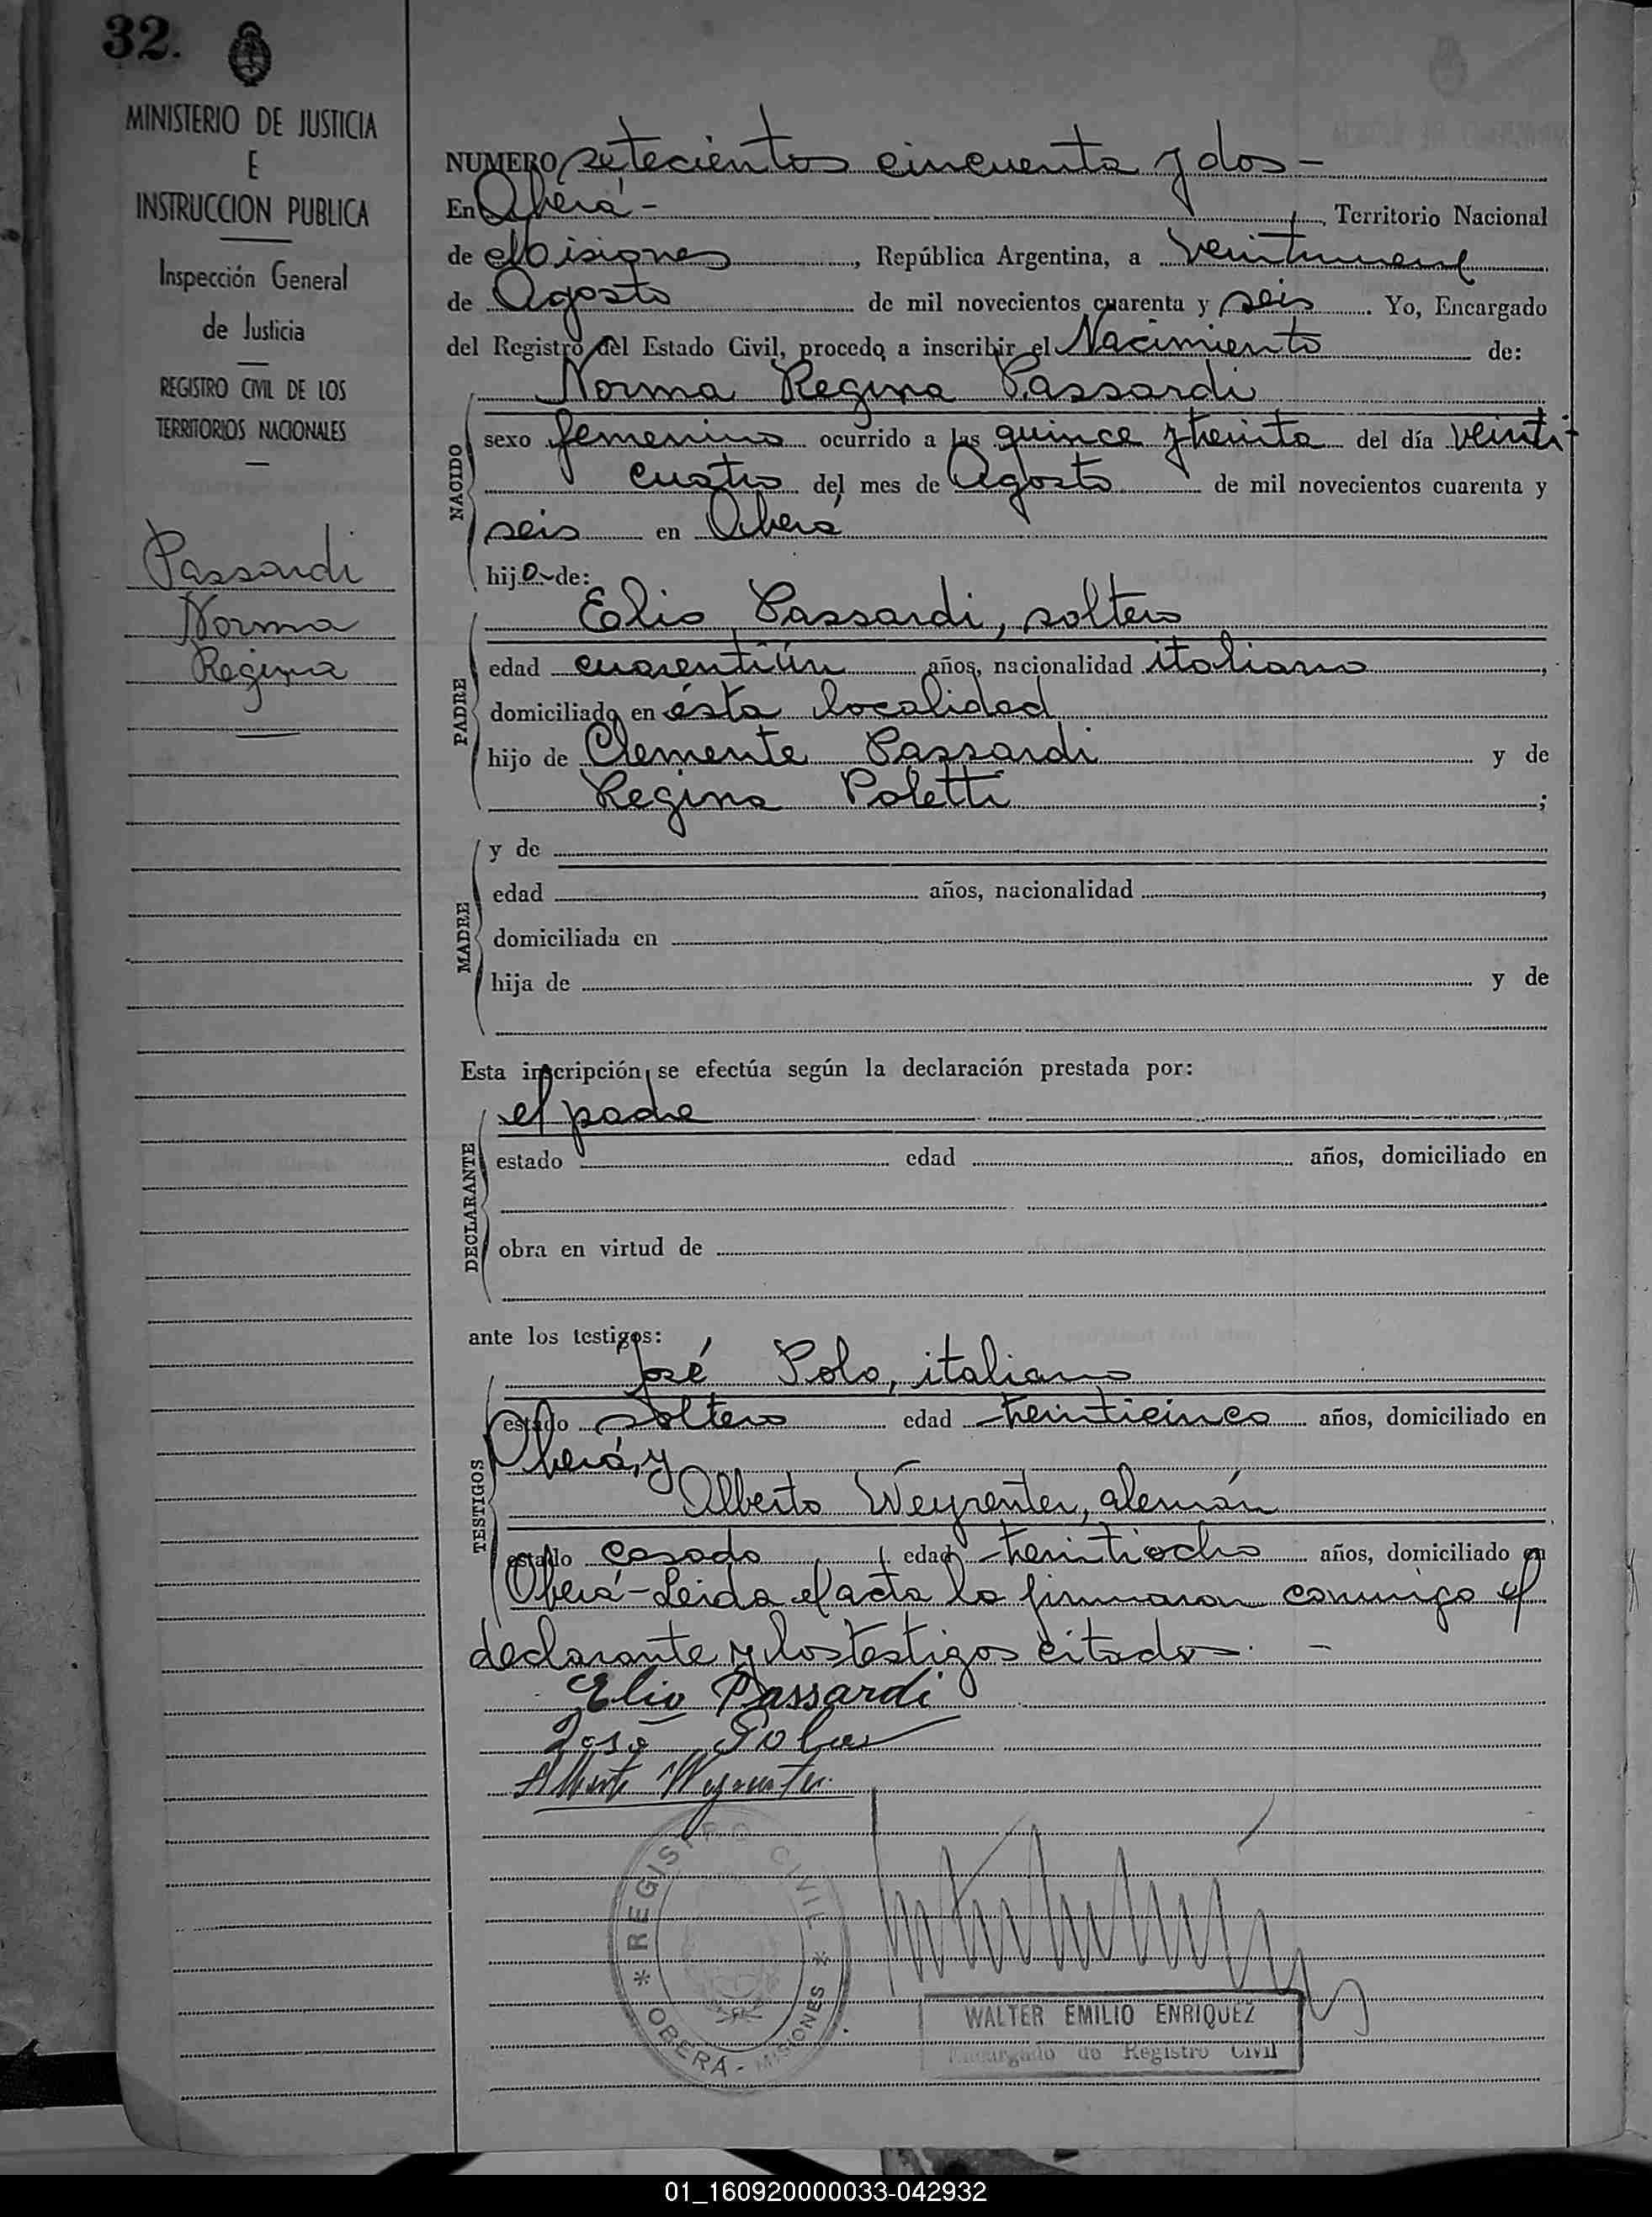 32.
MINISTERIO DE JUSTICIA
E
INSTRUCCION PUBLICA
Inspección General
de Justicia
REGISTRO CIVIL DE LOS
TERRITORIOS NACIONALES
Passardi
Norma
Regina
NUMERO setecientos cincuenta y dos -
En Oberá - , Territorio Nacional
de Misiones , República Argentina, a veintinueve
de Agosto de mil novecientos cuarenta y seis . Yo, Encargado
del Registro del Estado Civil, procedo a inscribir el Nacimiento de:
NACIDO
Norma Regina Passardi
sexo femenino ocurrido a las quince y treinta del día veinti-
cuatro del mes de Agosto de mil novecientos cuarenta y
seis en Oberá
hij a de:
PADRE
Elio Passardi, soltero
edad cuarentiún años, nacionalidad italiano ,
domiciliado en ésta localidad
hijo de Clemente Passardi y de
Regina Poletti ;
MADRE
y de
edad años, nacionalidad ,
domiciliada en
hija de y de
Esta inscripción se efectúa según la declaración prestada por:
DECLARANTE
el padre
estado edad años, domiciliado en
obra en virtud de
ante los testigos:
TESTIGOS
José Polo, italiano
estado soltero edad treinticinco años, domiciliado en
Oberá, y
Alberto Weyrenter, alemán
estado casado edad treintiocho años, domiciliado en
Oberá - Leída el acta la firmaron conmigo el
declarante y los testigos citados. -
Elio Passardi
José Polo
Alberto Weyrenter
REGISTRO CIVIL
OBERA - MISIONES
WALTER EMILIO ENRIQUEZ
Encargado de Registro Civil
01_160920000033-042932